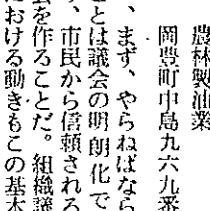 農林製油業
岡豊町中島九六九番
、まず、やらねばなら
ことは議会の明朗化で
、市民から信頼される
会を作ることだ。組織議
における動きもこの基本